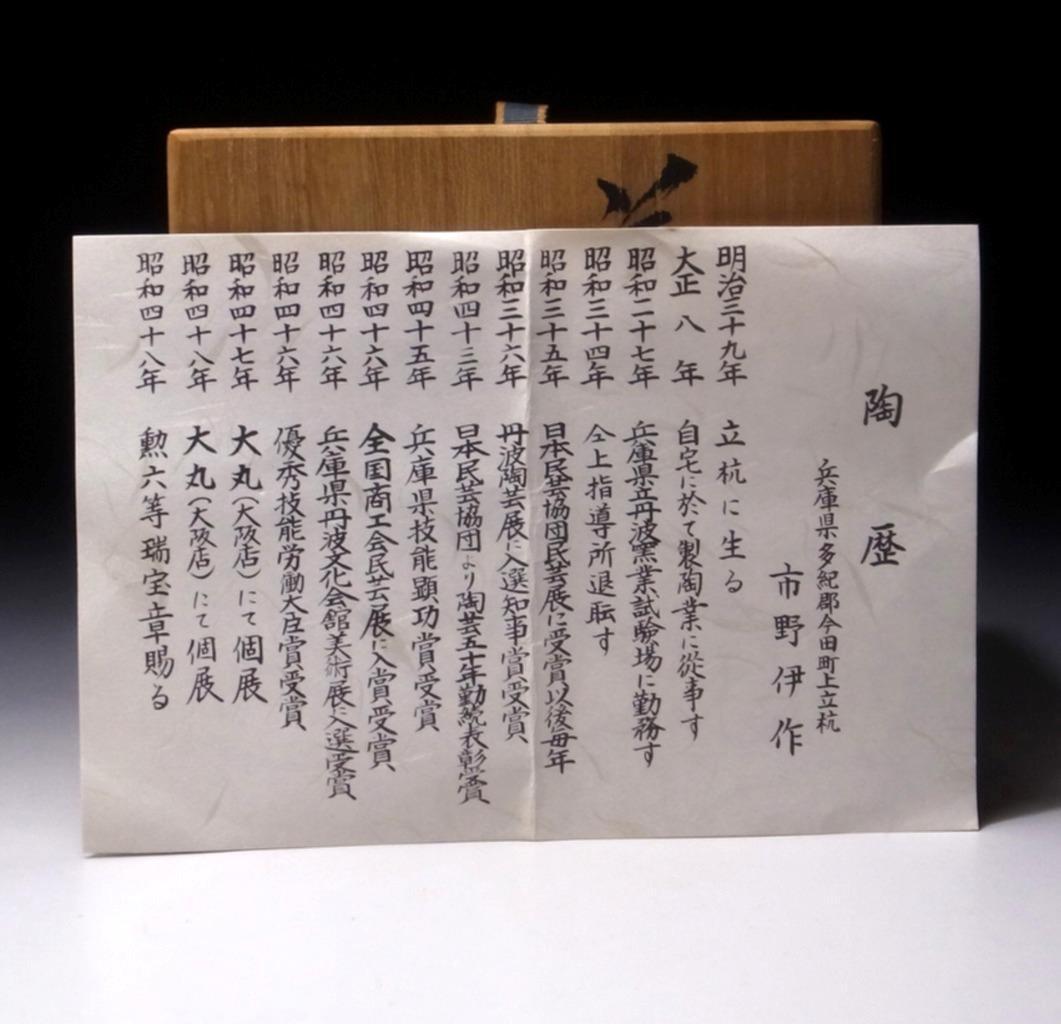 陶歴
兵庫県多紀郡今田町上立杭
市野伊作
明治三十九年 立杭に生る
大正八年 自宅に於て製陶業に従事す
昭和二十七年 兵庫県立丹波窯業試験場に勤務す
昭和三十四年 仝上指導所退転す
昭和三十五年 日本民芸協団民芸展に受賞以後毎年
昭和三十六年 丹波陶芸展に入選知事賞受賞
昭和四十三年 日本民芸協団より陶芸五十年勤続表彰受賞
昭和四十五年 兵庫県技能顕功賞受賞
昭和四十六年 全国商工会民芸展に入賞受賞
昭和四十六年 兵庫県丹波文化会館美術展に入選受賞
昭和四十六年 優秀技能労働大臣賞受賞
昭和四十七年 大丸(大阪店)にて個展
昭和四十八年 大丸(大阪店)にて個展
昭和四十八年 勲六等瑞宝章賜る